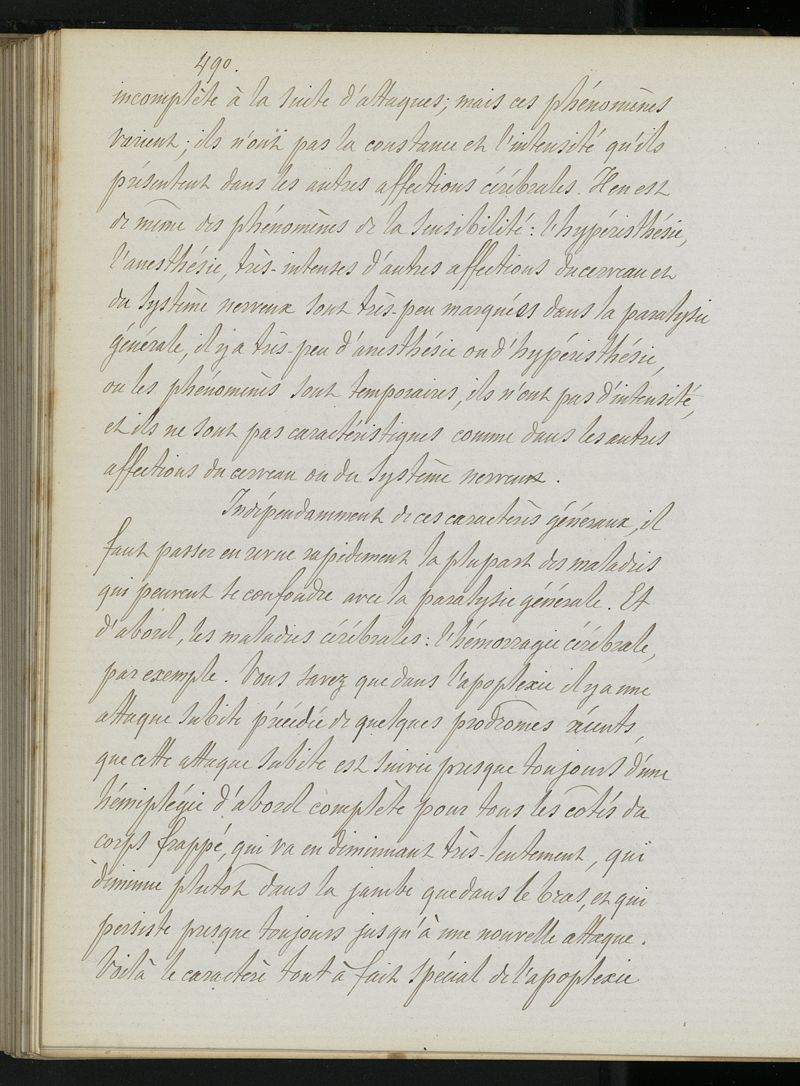 490.
incomplète à la suite d'attaques; mais ces phénomènes
varient; ils n'ont pas la constance et l'intensité qu'ils
présentent dans les autres affections cérébrales. Il en est
de même des phénomènes de la sensibilité: l'hypéresthésie,
l'anesthésie, très-intenses d'autres affections du cerveau et
du système nerveux sont très-peu marquées dans la paralysie
générale, il y a très-peu d'anesthésie ou d'hypéresthésie,
ou les phénomènes sont temporaires, ils n'ont pas d'intensité,
et ils ne sont pas caractéristiques comme dans les autres
affections du cerveau ou du système nerveux.
Indépendamment de ces caractères généraux, il
faut passer en revue rapidement la plupart des maladies
qui peuvent se confondre avec la paralysie générale. Et
d'abord, les maladies cérébrales: l'hémorragie cérébrale,
par exemple. Vous savez que dans l'apoplexie il y a une
attaque subite précédée de quelques prodrômes récents,
que cette attaque subite est suivie presque toujours d'une
hémiplégie d'abord complète pour tous les côtés du
corps frappé, qui va en diminuant très-lentement, qui
diminue plutôt dans la jambe que dans le bras, et qui
persiste presque toujours jusqu'à une nouvelle attaque.
Voilà le caractère tout à fait spécial de l'apoplexie